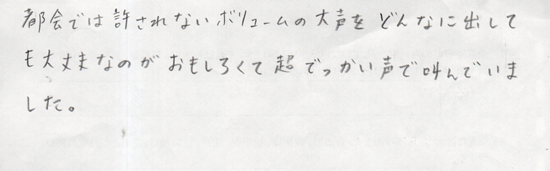 都会では許されないボリュームの大声をどんなに出して
も大丈夫なのがおもしろくて超でっかい声で叫んでいま
した。